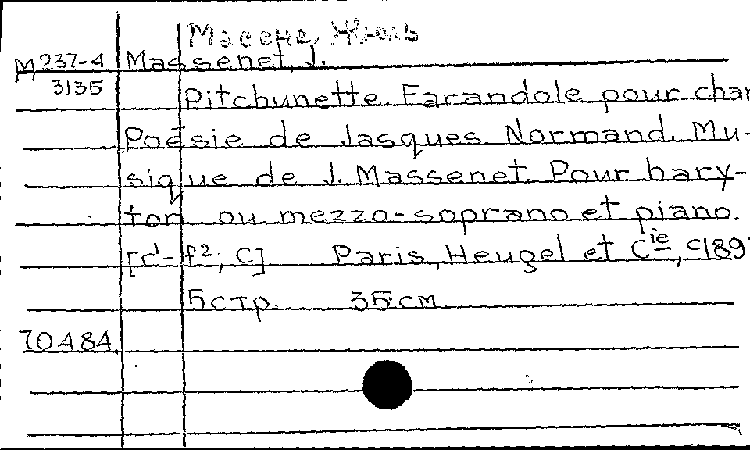 Массне, Жюль
М237-4 Massenet, J.
3135
Pitchunette. Farandole pour chan
Poésie de Jasques Normand. Mu-
sique de J. Massenet. Pour bary-
ton ou mezzo-soprano et piano.
[c¹-f²; C] Paris, Heugel et Cie, c189
5стр. 35см
70484